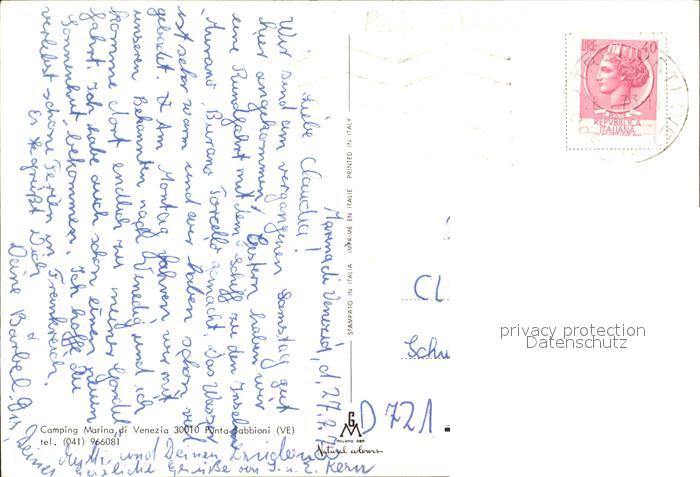 Marina di Venezia, d. 27.7.
Liebe Claudia!
Wir sind am vergangenen Samstag gut
hier angekommen! Gestern haben wir
eine Rundfahrt mit dem Schiff zu den Inseln
Murano, Burano, Torcello gemacht. Das Wasser
ist sehr warm und wir haben schon viel
gebadet. Am Montag fahren wir mit
unseren Bekannten nach Venedig und ich
komme dort endlich zu meiner Gondel-
fahrt. Ich habe auch schon einen
Sonnenhut bekommen. Ich hoffe Du
verlebst schöne Ferien in Frankreich.
Es grüßt Dich
Deine Bärbel
Deiner Mutti und Deinen
herzliche Grüße von Kern
Camping Marina di Venezia 30010 Punta Sabbioni (VE)
tel. (041) 966081
STAMPATO IN ITALIA IMPRIMÉ EN ITALIE PRINTED IN ITALY
Natural colours
LIRE 40
POSTE
REPVBBLICA
ITALIANA
Cl
Schu
D 721
privacy protection
Datenschutz